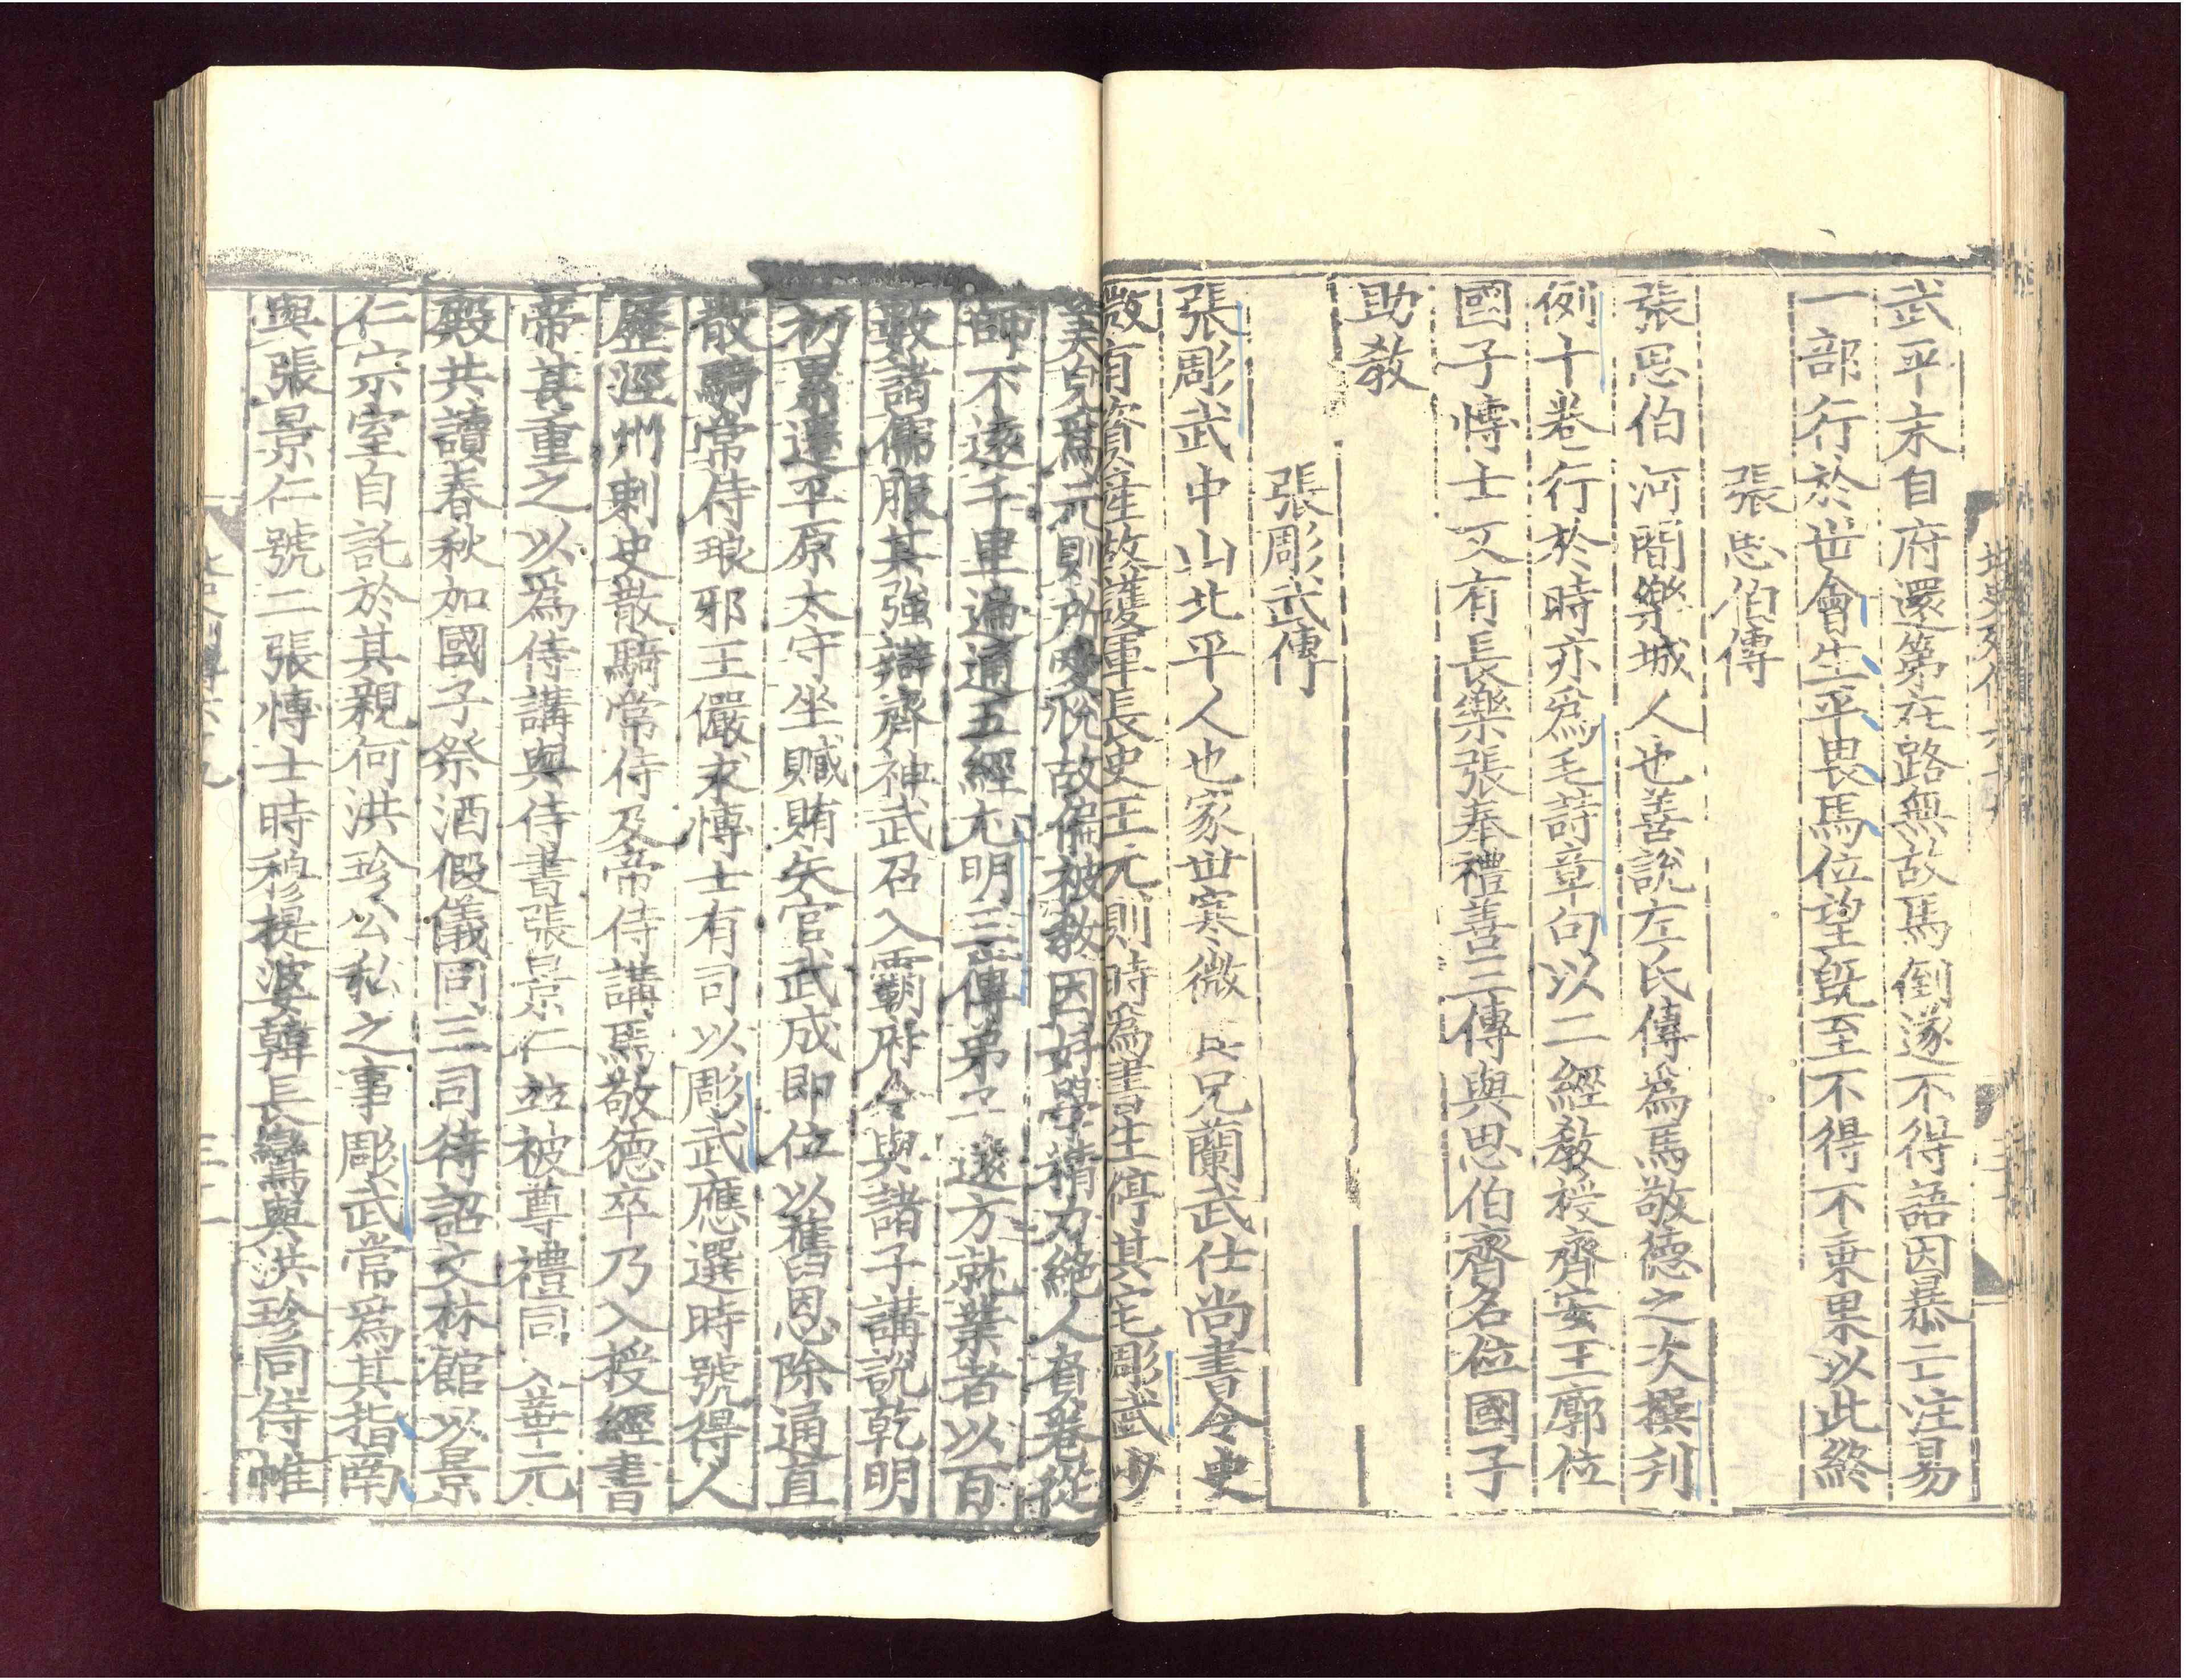 武平末自府還第在路無故馬倒遂不得語因暴亡注易
一部行於世會生平畏馬位望既至不得不乗果以此終
張思伯傳
張思伯河間樂城人也善説左氏傳爲馬敬德之次撰刋
例十卷行於時亦爲毛詩章句以二經教授齊安王廓位
國子慱士又有長樂張奉禮善三傳與思伯齊名位國子
助教
張彫武傳
張彫武中山北平人也家世寒微其兄蘭武仕尚書令史
微有資産故護軍長史王元則時爲書生停其宅彫武少
美皃爲元則所愛恱故偏被教因好學精力絶人負卷從
師不逺千里遍通五經尤明三傳弟子逺方就業者以百
數諸儒服其強辯齊神武召入霸府令與諸子講説乾明
初累遷平原太守坐贓賄失官武成即位以舊恩除通直
散騎常侍琅邪王儼求慱士有司以彫武應選時號得人
歴涇州刺史散騎常侍及帝侍講馬敬德卒乃入授經書
帝甚重之以爲侍講與侍書張景仁並被尊禮同入華元
殿共讀春秋加國子祭酒假儀同三司待詔文林館以景
仁宗室自託於其親何洪珍公私之事彫武常爲其指南
與張景仁號二張慱士時穆提婆韓長鸞與洪珍同侍帷